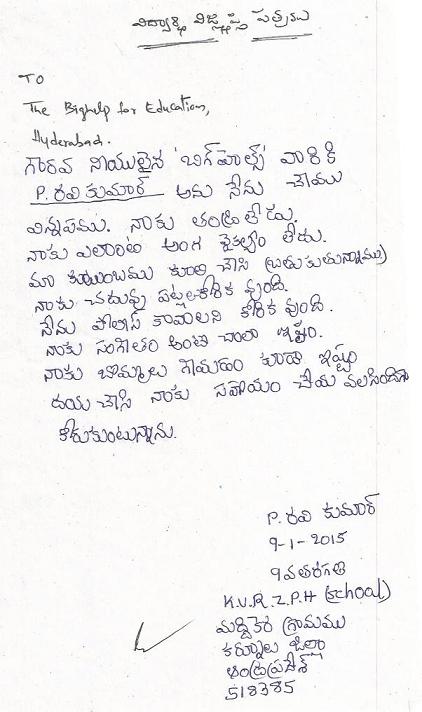 విద్యార్థి విజ్ఞప్తి పత్రము
TO
The Bighelp for Education,
Hyderabad.
గౌరవ నియులైన 'బిగ్ హెల్ప్' వారికి
P. రవి కుమార్ అను నేను చేయు
విన్నపము. నాకు తండ్రి లేడు.
నాకు ఎలాంటి అంగ వైకల్యం లేదు.
మా కుటుంబము కూలి చేసి (బతుకుతున్నాము)
నాకు చదువు పట్ల కోరిక వుంది.
నేను పోలీస్ కావాలని కోరిక వుంది.
నాకు సంగీతం అంటే చాలా ఇష్టం.
నాకు బొమ్మలు గీయడం కూడా ఇష్టం
దయ చేసి నాకు సహాయం చేయ వలసిందిగా
కోరుకుంటున్నాను.
P. రవి కుమార్
9-1-2015
9వ తరగతి
K.V.R.Z.P.H (school)
మద్దికెర గ్రామము
కర్నూలు జిల్లా
ఆంధ్రప్రదేశ్
518385